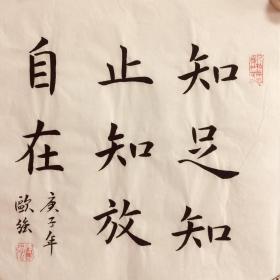 知足知
止知放
自在
庚子年
歐強